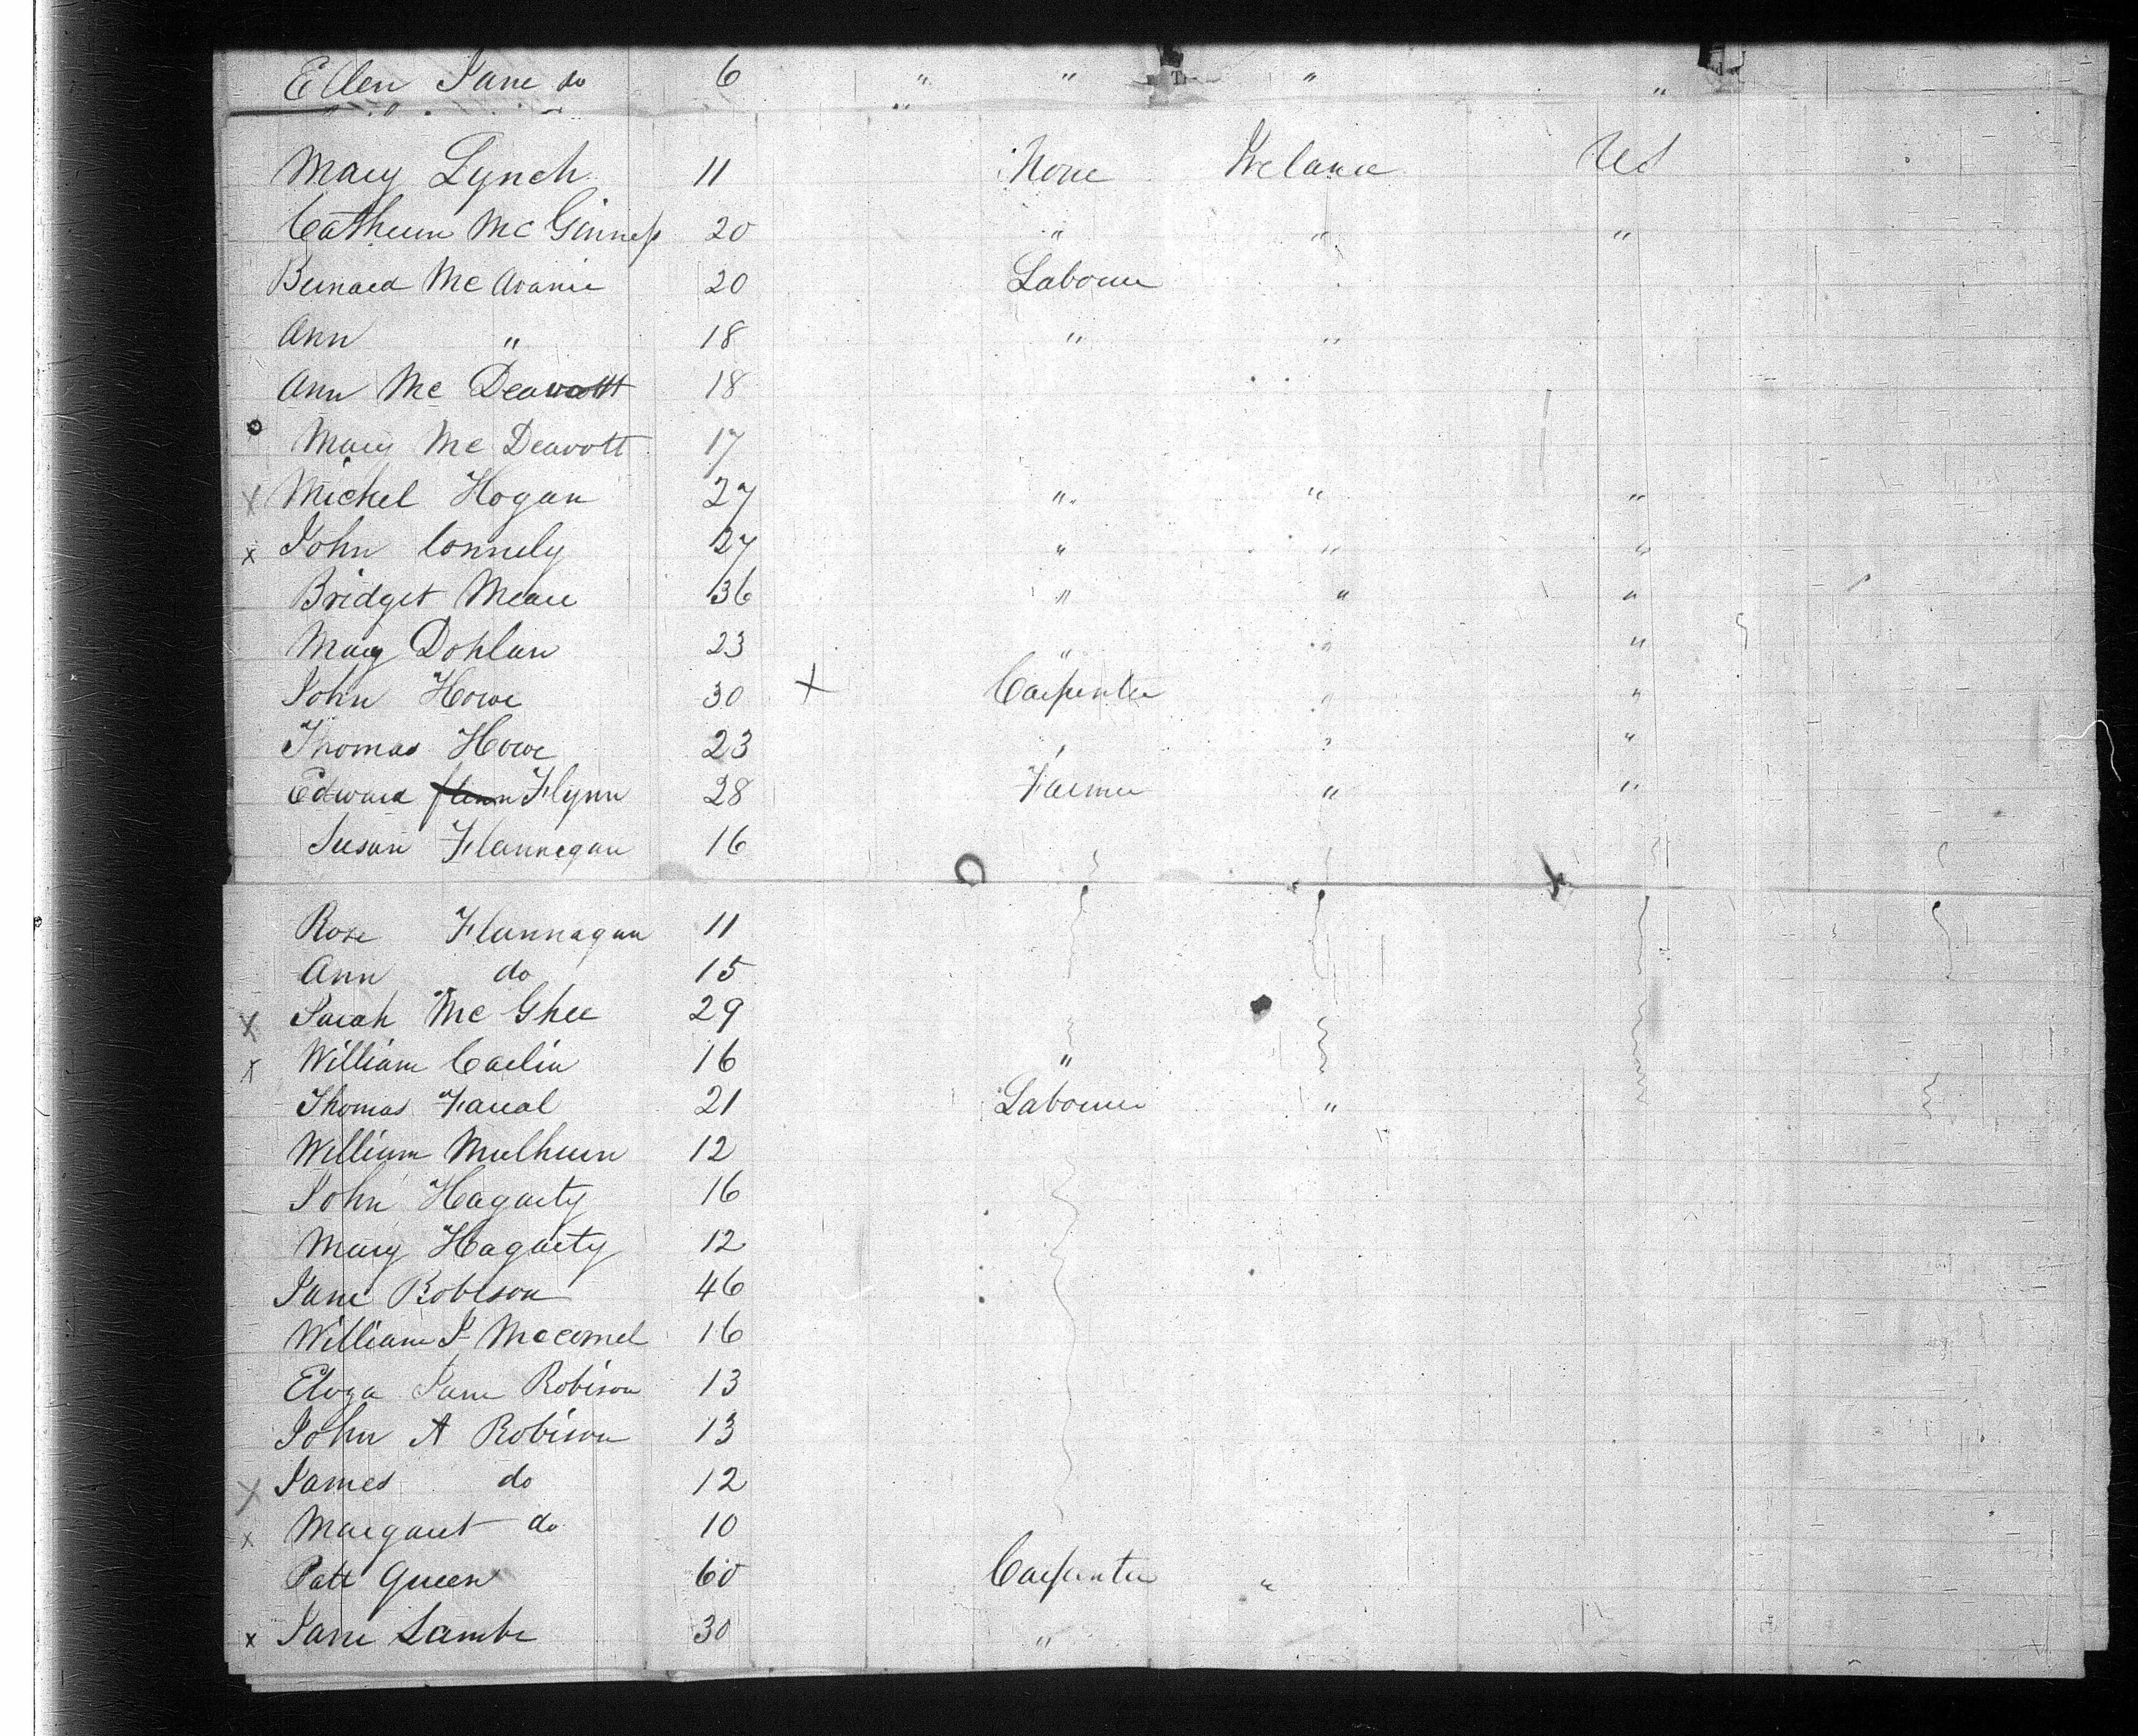 Ellen Jane do 6 " " " "
Mary Lynch 11 None Ireland US
Cathern Mc Ginness 20 " " "
Bernard Mc Avanie 20 Labourer
Ann " 18 " "
Ann Mc Deavott 18
Mary Mc Deavott 17
x Michel Hogan 27 " " "
x John Connely 27 " " "
Bridget Meare 36 " " "
Mary Dohlan 23 " " "
John Howe 30 + Carpenter " "
Thomas Howe 23 " " "
Edward Flynn 28 Farmer " "
Susan Flannegan 16
Rose Flannagan 11
Ann do 15
x Sarah Mc Ghee 29
x William Carlin 16 "
Thomas Faral 21 Labourer "
William Mulhern 12
John Hagarty 16
Mary Hagarty 12
Jane Robeson 46
William J 16
Jane Robison 13
John A Robison 13
x James do 12
x Margaret do 10
Patt Queen 60 Carpenter "
x Jane Lambe 30 "